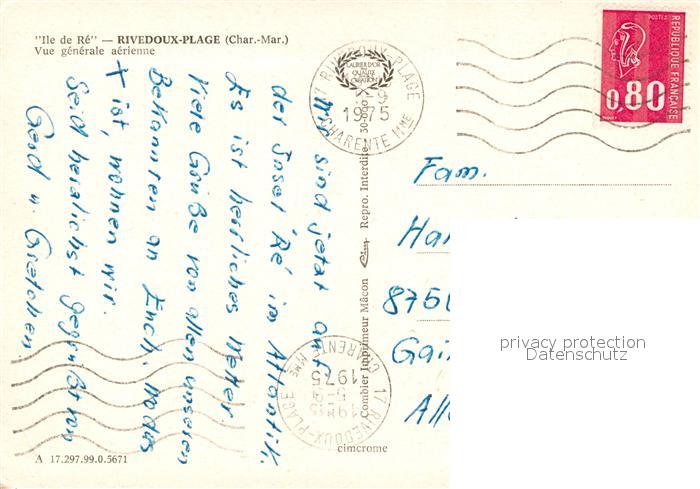 "Ile de Ré" — RIVEDOUX-PLAGE (Char.-Mar.)
Vue générale aérienne
Wir sind jetzt auf
der Insel 'Ré' im Atlantik.
Es ist herrliches Wetter.
Viele Grüße von allen unseren
Bekannten an Euch.
x ist, wohnen wir.
Seid herzlichst gegrüßt von
Gerd u. Gretchen.
17 RIVEDOUX-PLAGE
1975
CHARENTE MME
LAURIER D'OR
QUALITÉ
CREATION
Combier Imprimeur Mâcon Cim Repro. Interdite
17 RIVEDOUX-PLAGE
19H15
5-9
1975
CHARENTE MME
POSTES
REPUBLIQUE FRANÇAISE
0,80
Fam.
Ha
875
Gai
All
privacy protection
Datenschutz
cimcrome
A 17.297.99.0.5671